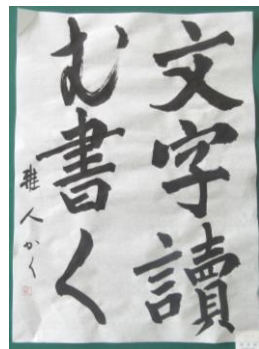 文字讀
む書く
雅人かく